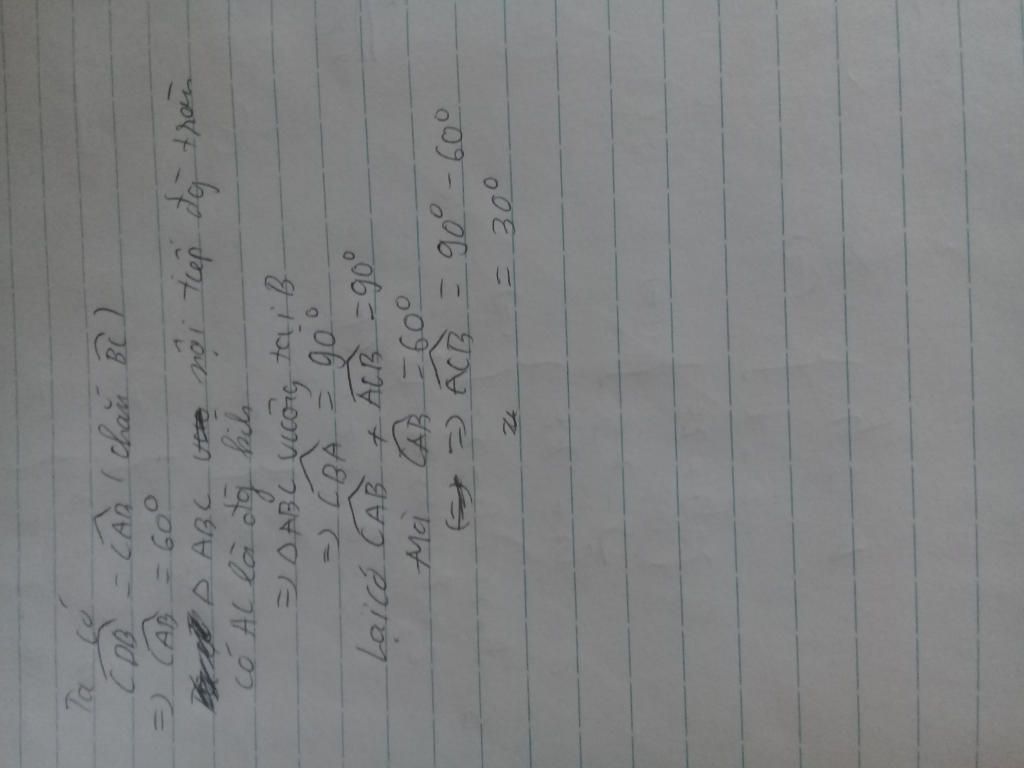 Ta có
$\widehat{CDB} = \widehat{CAB}$ (chắn $\overset{\frown}{BC}$)
=> $\widehat{CAB}$ = 60°
Δ ABC nội tiếp đg tròn
có AC là đg kính
=> Δ ABC vuông tại B
=> $\widehat{CBA}$ = 90°
Lại có $\widehat{CAB}$ + $\widehat{ACB}$ = 90°
Mà $\widehat{CAB}$ = 60°
=> $\widehat{ACB}$ = 90° - 60°
= 30°